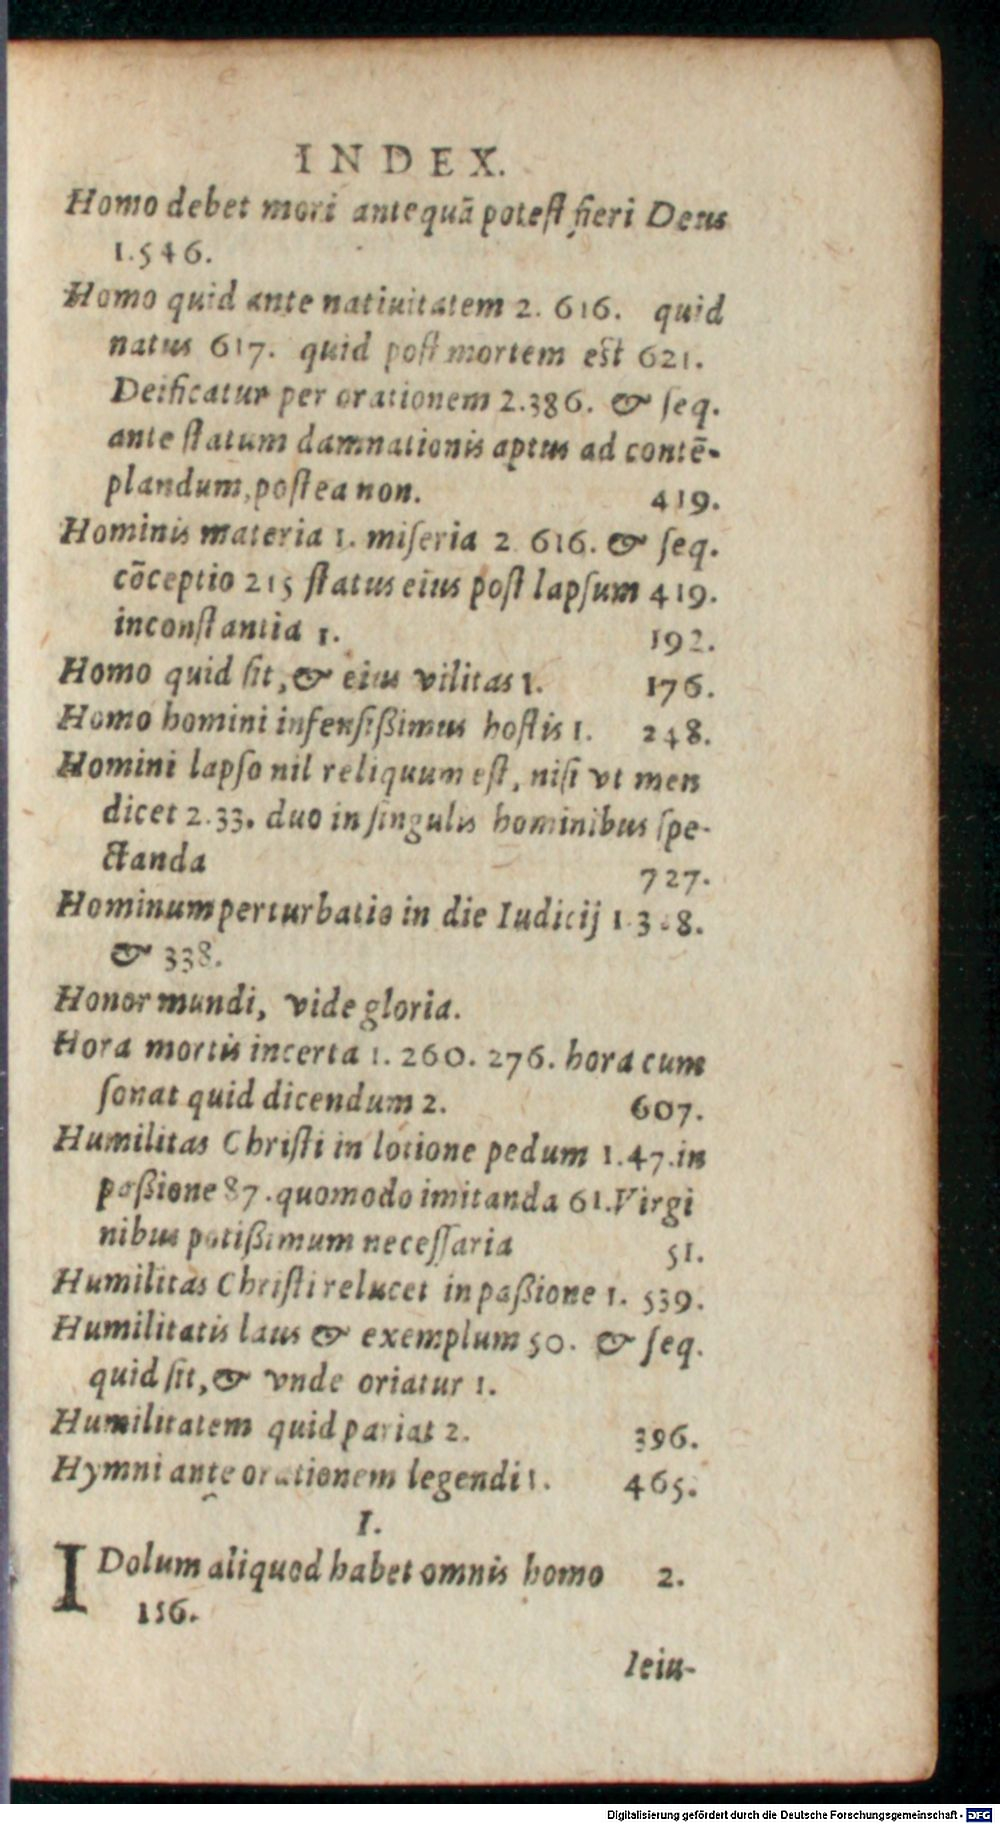 INDEX.
Homo debet mori antequā potest fieri Deus
1.546.
Homo quid ante natiuitatem 2. 616. quid
natus 617. quid post mortem est 621.
Deificatur per orationem 2.386. & seq.
ante statum damnationis aptus ad contē-
plandum, postea non. 419.
Hominis materia 1. miseria 2 616. & seq.
cōceptio 215 status eius post lapsum 419.
inconstantia 1. 192.
Homo quid sit, & eius vilitas 1. 176.
Homo homini infensißimus hostis 1. 248.
Homini lapso nil reliquum est, nisi vt men
dicet 2.33. duo in singulis hominibus spe-
ctanda 727.
Hominum perturbatio in die Iudicij
& 338.
Honor mundi, vide gloria.
Hora mortis incerta 1. 260. 276. hora cum
sonat quid dicendum 2. 607.
Humilitas Christi in lotione pedum 1.47.in
paßione 87. quomodo imitanda 61.Virgi
nibus potißimum necessaria 51.
Humilitas Christi relucet in paßione 1. 539.
Humilitatis laus & exemplum 50. & seq.
quid sit, & vnde oriatur 1.
Humilitatem quid pariat 2. 396.
Hymni ante orationem legendi 1. 465.
I.
IDolum aliquod habet omnis homo 2.
156.
Ieiu-
Digitalisierung gefördert durch die Deutsche Forschungsgemeinschaft - DFG